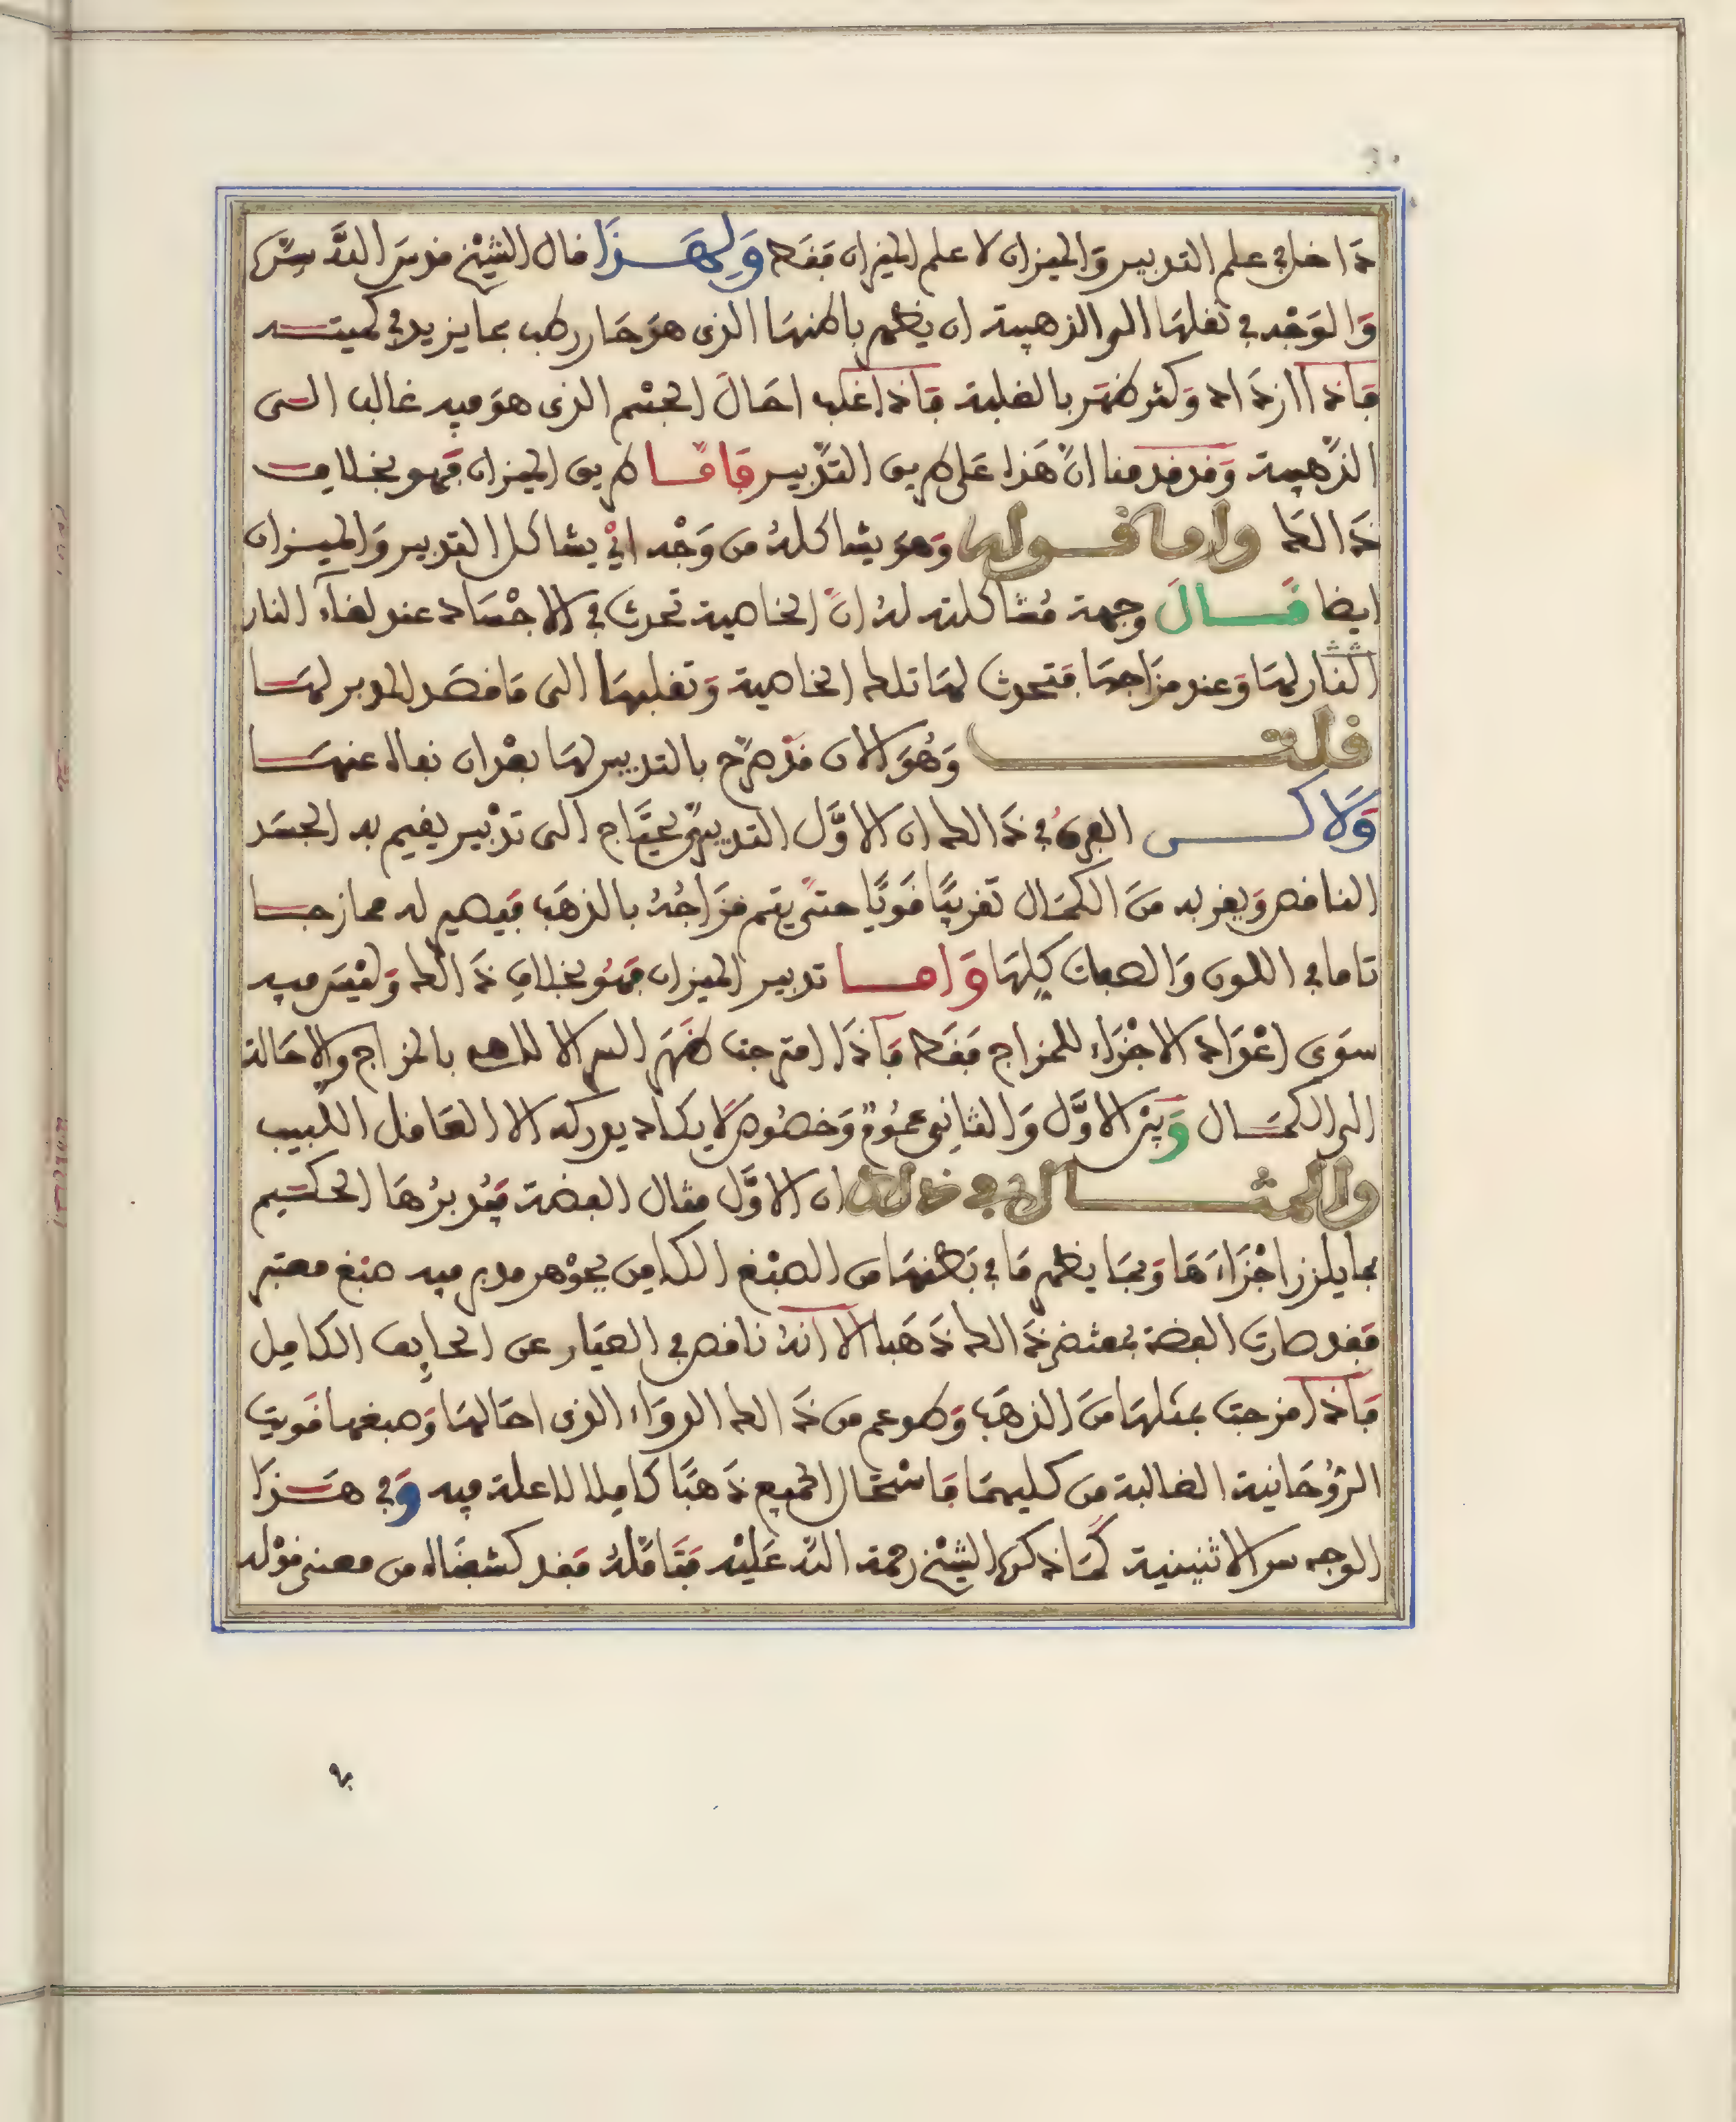 داخل في علم التدبير وَالميزان لا علم الميزان فَقَط وَلِهَـذَا قال الشيْخ قدسَ اللَّه سِرَّه
وَالوَجْه في نقلهَا الى الذهبية ان يظهر باطنهَا الذى هوَ حَار رطب بما يزيد في كميتـه
فَاذا ازدَاد وَكثر ظهَر بالغلبة فَاذا غلب احَالَ الجسْم الذى هوَ فيه غالب الـى
الذَّهبية وَقد قدمنا انَّ هَذا عَلى طريق التدْبير فَامَّـا طريق الميزان فَهو بخلاف
ذَالك واما قـوله وَهوَ يشاكلهُ من وَجْه ايْ يشاكل التدبير وَالميـزان
ايضا قَـالَ وجهة مُشاكلته لهُ انَّ الخاصية تحدث في الاجْسَاد عند لقآء النار
النار لهَا وَعند مزَاجهَا فتحدث لهَا تلك الخاصية وَتقلبهَا الى مَا قصَد المدبر لهَـا
قلـت وَهُوَ الان قدْ صرَّح بالتدبير لهَا بعْد ان نفاه عنهَـا
وَلَاكـن الفرقُ في ذَالك ان الاوَّل التدبيرىّ يحتَاج الى تدْبير يقيم به الجسَد
الناقص وَيقربه منَ الكمَال تقريبًا قَويًا حتىَّ يتم مزَاجُهُ بالذهَب فيصير له ممازجـا
تاما في اللون وَالصفات كلهَا وَامـا تدبير الميزان فهُو بخلافِ ذَالك وَليْسَ فيه
سوَى اعْدَاد الاجْزَاء للمزاج فقَط فَاذَا امتزجت ظهَر السر الالاهى بالمزاج والاحَالة
الى الكمَـال وَبيْن الاوَّل وَالثانىِ عمُومٌ وَخصُوصٌ لا يكاد يدركه الا العَاقل اللبيب
والمثـال في ذلك ان الاوَّل مثال الفضة يُدبرُهَا الحكيم
بما يلزز اجْزَاءَهَا وَبمَا يظهر مَا في بَطْنهَا من الصبْغ الكامِن بجوْهر مدبر فيه صبْغ معتبر
فقد صارت الفضة بمقتضى ذَالك ذهَبا الا انهُ ناقص في العيَار عن الحايف الكامِل
فَاذا مزجت بمثلهَا منَ الذهَب وَطوعم من ذَالك الدوَاء الذى احَالهَا وَصبغهما قَويت
الرُّوحَانية الغالبة من كليهمَا فَاسْتحَال الجميع ذَهبًا كاملا لا علة فيه وَفي هَـذَا
الوجه سر الاثنينية كمَا ذكره الشيْخ رحمة اللَّه عَليْه فتَامَّلهُ فقد كشفنَاه من معنى قوْله